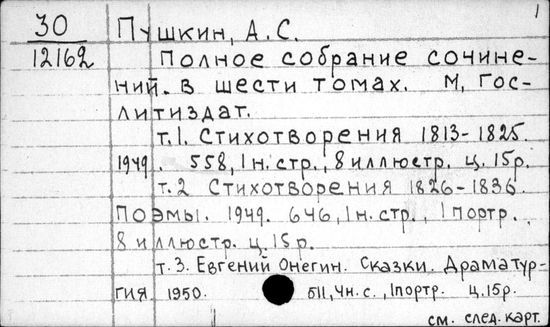 1
30 Пушкин, А.С.
12162 Полное собрание сочине-
ний. в шести томах. М, Гос-
литиздат.
т.1. Стихотворения 1813-1825
1949. 558, 1н.стр., 8 иллюстр. ц. 15р.
т.2 Стихотворения 1826-1836.
Поэмы. 1949. 646, 1н. стр., 1 портр.
8 иллюстр. ц. 15р.
т.3. Евгений Онегин. Сказки. Драматур-
гия 1950. 511, 4н.с., 1портр. ц.15р.
см. след. карт.